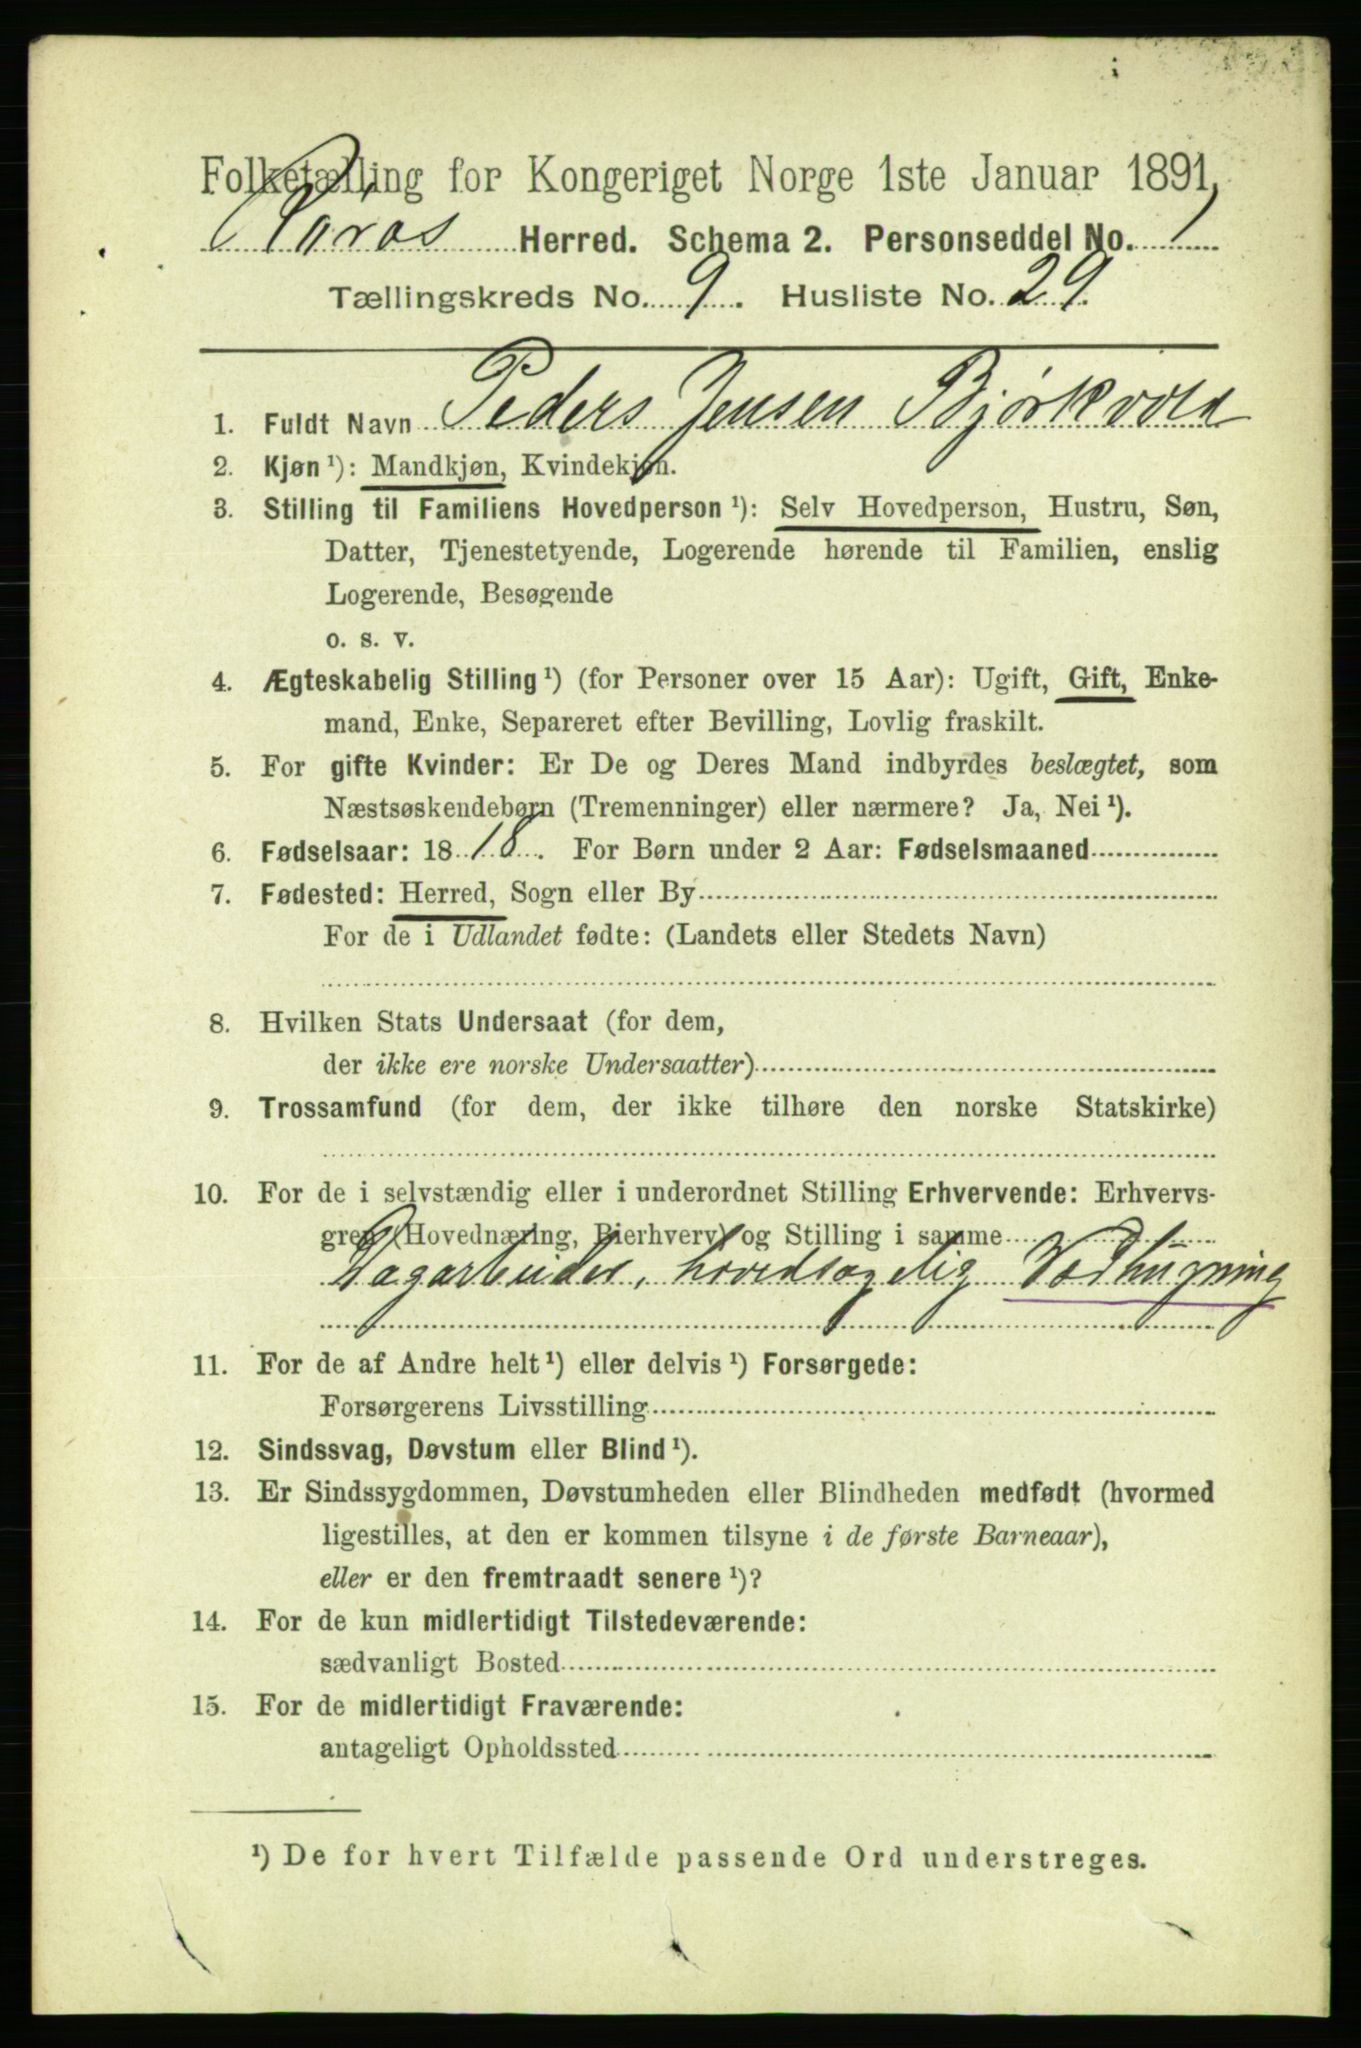 Folketælling for Kongeriget Norge 1ste Januar 1891,
Røros Herred. Schema 2. Personseddel No. 1
Tællingskreds No. 9. Husliste No. 29.
1. Fuldt Navn Peders Jensen Bjørkvold
2. Kjøn ¹): Mandkjøn, Kvindekjøn.
3. Stilling til Familiens Hovedperson ¹): Selv Hovedperson, Hustru, Søn,
Datter, Tjenestetyende, Logerende hørende til Familien, enslig
Logerende, Besøgende
o. s. v.
4. Ægteskabelig Stilling ¹) (for Personer over 15 Aar): Ugift, Gift, Enke-
mand, Enke, Separeret efter Bevilling, Lovlig fraskilt.
5. For gifte Kvinder: Er De og Deres Mand indbyrdes beslægtet, som
Næstsøskendebørn (Tremenninger) eller nærmere? Ja, Nei ¹).
6. Fødselsaar: 1818. For Børn under 2 Aar: Fødselsmaaned
7. Fødested: Herred, Sogn eller By
For de i Udlandet fødte: (Landets eller Stedets Navn)
8. Hvilken Stats Undersaat (for dem,
der ikke ere norske Undersaatter)
9. Trossamfund (for dem, der ikke tilhøre den norske Statskirke)
10. For de i selvstændig eller i underordnet Stilling Erhvervende: Erhvervs-
gren (Hovednæring, Bierhverv) og Stilling i samme
Dagarbeider, hovedsagelig Vedhugning
11. For de af Andre helt ¹) eller delvis ¹) Forsørgede:
Forsørgerens Livsstilling
12. Sindssvag, Døvstum eller Blind ¹).
13. Er Sindssygdommen, Døvstumheden eller Blindheden medfødt (hvormed
ligestilles, at den er kommen tilsyne i de første Barneaar),
eller er den fremtraadt senere ¹)?
14. For de kun midlertidigt Tilstedeværende:
sædvanligt Bosted
15. For de midlertidigt Fraværende:
antageligt Opholdssted
¹) De for hvert Tilfælde passende Ord understreges.